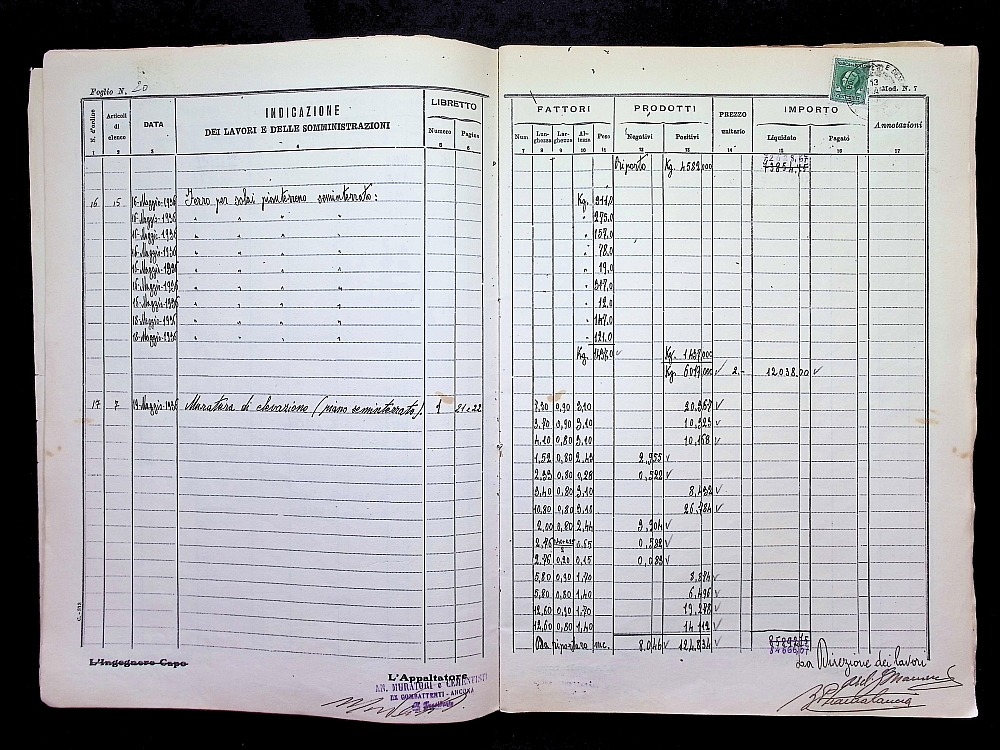 Foglio N. 20
N. d'ordine
Articoli di elenco
DATA
INDICAZIONE
DEI LAVORI E DELLE SOMMINISTRAZIONI
LIBRETTO
Numero Pagina
1 2 3 4 5 6
16 15 16-Maggio-1936 Ferro per solai pianterreno seminterrato:
16-Maggio-1936 " " " "
16-Maggio-1936 " " " "
16-Maggio-1936 " " " "
16-Maggio-1936 " " " "
16-Maggio-1936 " " " "
18-Maggio-1936 " " " "
18-Maggio-1936 " " " "
18-Maggio-1936 " " " "
17 7 19-Maggio-1936 Muratura di elevazione (piano seminterrato). 1 21 e 22
L'Ingegnere Capo
L'Appaltatore
AN. MURATORI e CEMENTISTI
EX COMBATTENTI - ANCONA
Mod. N. 7
FATTORI PRODOTTI PREZZO unitario IMPORTO Annotazioni
Num Lunghezza Larghezza Altezza Peso Negativi Positivi Liquidato Pagato
7 8 9 10 11 12 13 14 15 16 17
Riporto Kg. 4582,000
Kg. 211.0
" 275.0
" 157.0
" 78.0
" 19.0
" 317.0
" 12.0
" 147.0
" 121.0
Kg. 1437.0 Kg. 1437,000
Kg. 6019,000 2.- 12038.00
7.30 0,90 3,10 20,367
3.70 0,90 3,10 10,323
4.10 0,80 3,10 10,168
1,52 0,80 2,43 2,955
2,33 0,80 0,28 0,522
3,40 0,80 3,10 8,432
10,80 0,80 3,10 26,784
2,00 0,80 2,44 3,904
2,76 0,65
2,76 0,20 0,15 0,083
5,80 0,90 1,70 8,874
5,80 0,80 1,40 6,496
12,60 0,90 1,70 19,278
12,60 0,80 1,40 14,112
Da riportare mc. 8,046 124,834
La Direzione dei lavori